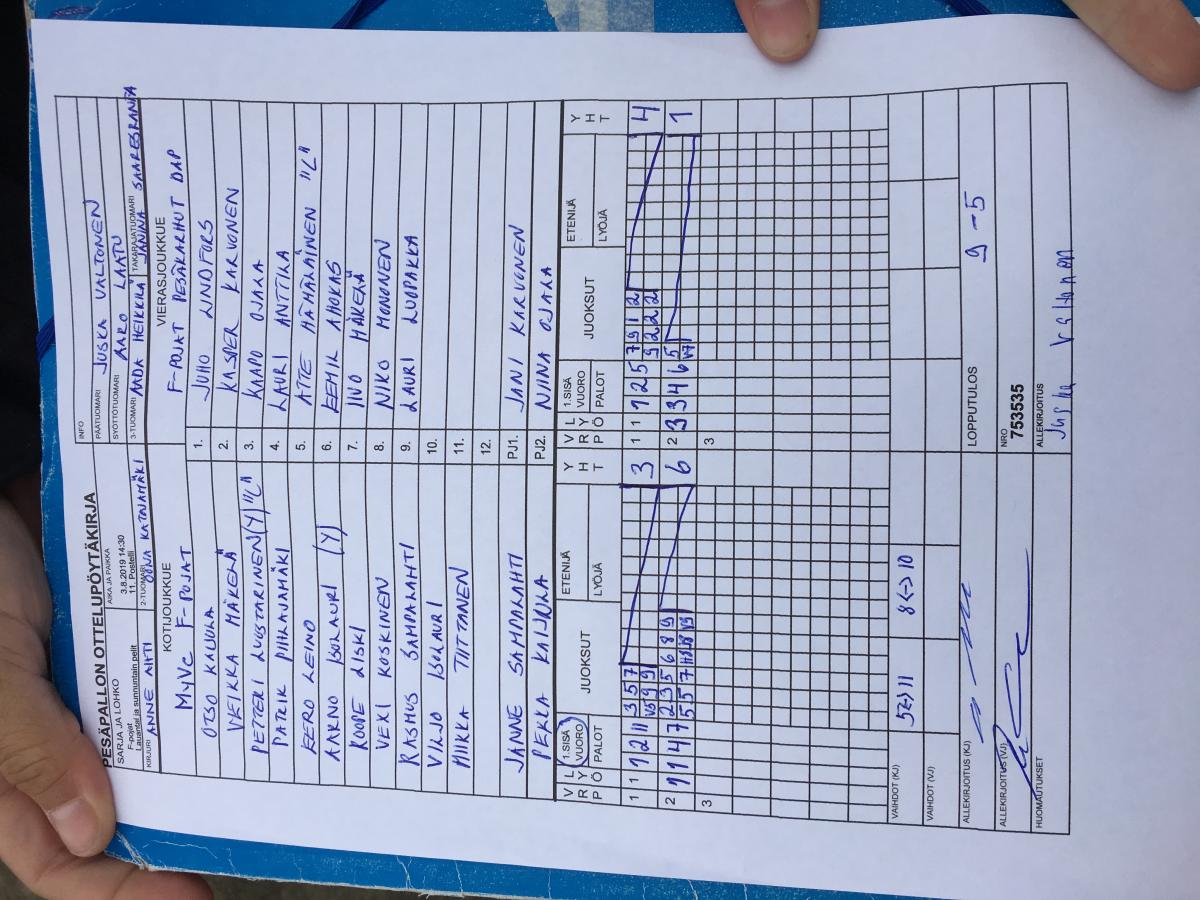 PESÄPALLON OTTELUPÖYTÄKIRJA
SARJA JA LOHKO
F-pojat
Lauantai ja sunnuntain pelit
AIKA JA PAIKKA
3.8.2019 14:30
11. Postelli
INFO
PÄÄTUOMARI JUSKA VALTONEN
SYÖTTÖTUOMARI AARO LAATU
KIRJURI ANNE AHTI
2-TUOMARI OONA KATAJAMÄKI
3-TUOMARI AADA HEIKKILÄ
TAKARAJATUOMARI JANINA SAARESRANTA
KOTIJOUKKUE
MyVe F-POJAT
VIERASJOUKKUE
F-POJAT PESÄKARHUT DAP
OTSO KAUURA 1. JUHO LINDFORS
VEIKKA MÄKELÄ 2. KASPER KARVONEN
PETTERI LUUSTARINEN (Y) "L" 3. KAAPO OJALA
PATRIK PIHLAJAMÄKI 4. LAURI ANTTILA
EERO LEINO 5. ATTE HÄMÄLÄINEN "L"
AARNO ISOLAURI (Y) 6. EEMIL AHOKAS
ROOPE LISKI 7. IIVO MÄKELÄ
VEKI KOSKINEN 8. NIKO MONONEN
RASMUS SAMPALAHTI 9. LAURI LUOPAKKA
VILJO ISOLAURI 10.
MIIKA TIITTANEN 11.
12.
JANNE SAMPALAHTI PJ1. JANI KARVONEN
PEKKA PJ2. NIINA OJALA
VRP LYÖ 1.SISÄ VUORO PALOT JUOKSUT ETENIJÄ LYÖJÄ YHT
VRP LYÖ 1.SISÄ VUORO PALOT JUOKSUT ETENIJÄ LYÖJÄ YHT
1 1 1 2 11 3 5 7 3
1 1 1 2 5 7 9 1 2 4
9 2 2 2
2 1 1 4 7 2 3 5 6 8 9 6
2 3 3 4 6 5 1
3
3
VAIHDOT (KJ) 5<->11 8<->10
VAIHDOT (VJ)
ALLEKIRJOITUS (KJ)
LOPPUTULOS 9-5
ALLEKIRJOITUS (VJ)
NRO
753535
HUOMAUTUKSET
ALLEKIRJOITUS
Juska Valtonen